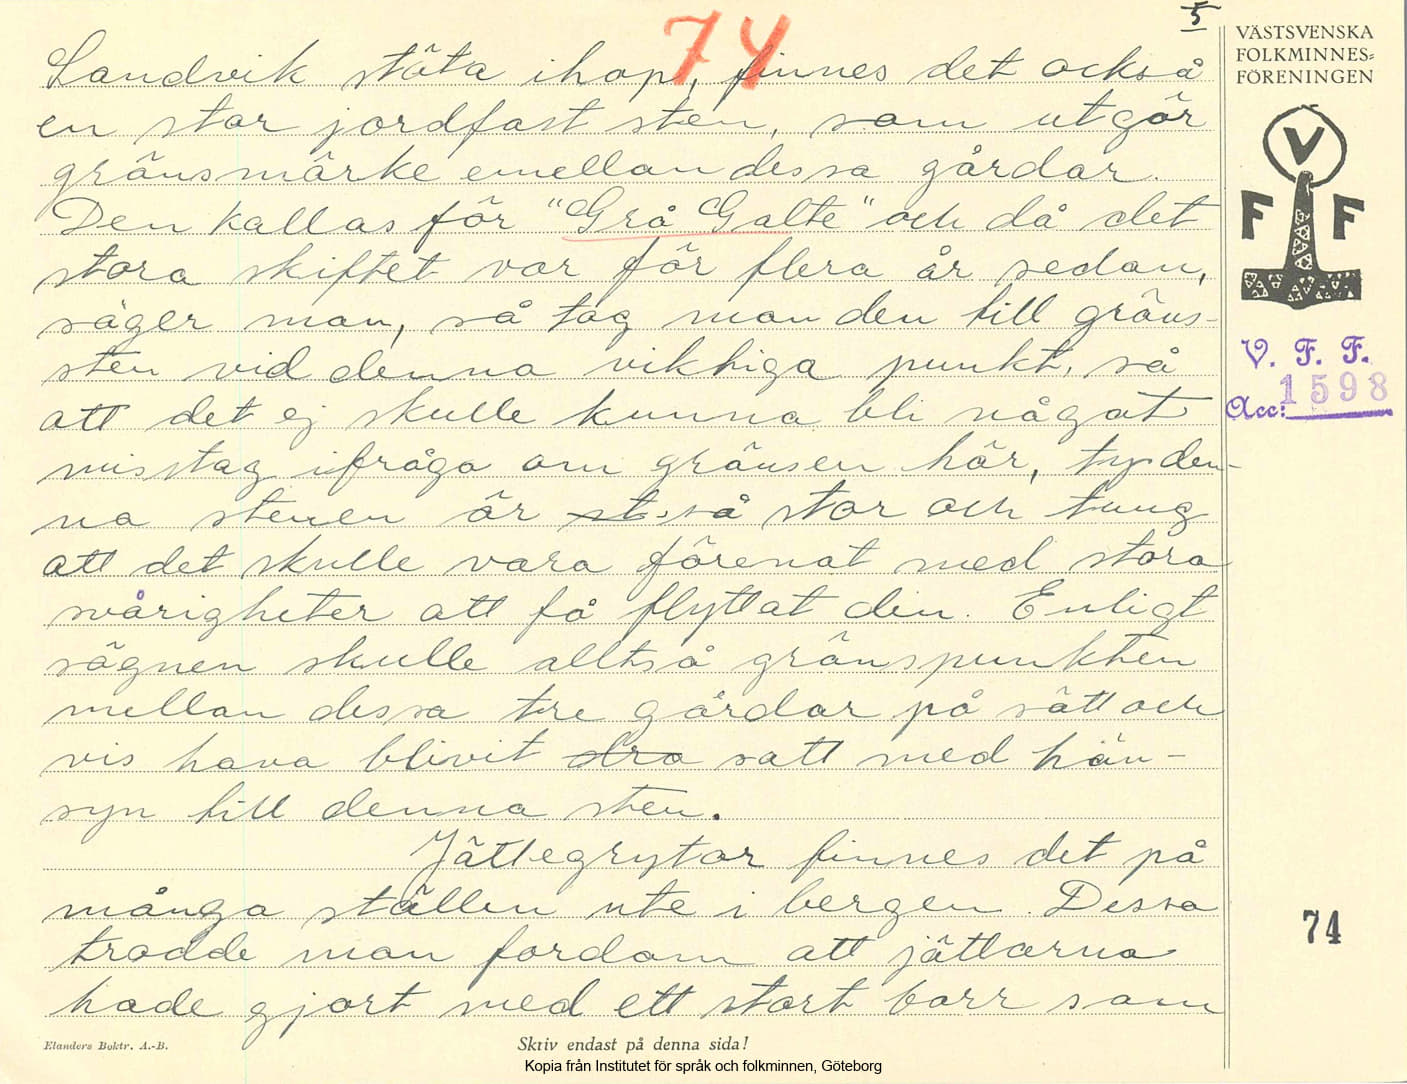 5
74
VÄSTSVENSKA
FOLKMINNES=
FÖRENINGEN
V
F F
V. F. F.
Acc: 1598
Sandvik stöta ihop, finnes det också
en stor jordfast sten, som utgör
gränsmärke emellan dessa gårdar.
Den kallas för "Grå Galte" och då det
stora skiftet var för flera år sedan,
säger man, så tog man den till gräns-
sten vid denna viktiga punkt, så
att det ej skulle kunna bli något
misstag ifråga om gränsen här, ty den-
na stenen är st så stor och tung
att det skulle vara förenat med stora
svårigheter att få flyttat den. Enligt
sägnen skulle alltså gränspunkten
mellan dessa tre gårdar på sätt och
vis hava blivit dra satt med hän-
syn till denna sten.
Jättegrytor finnes det på
många ställen ute i bergen. Dessa
trodde man fordom att jättarna
hade gjort med ett stort borr som
74
Elanders Boktr. A.-B.
Skriv endast på denna sida!
Kopia från Institutet för språk och folkminnen, Göteborg